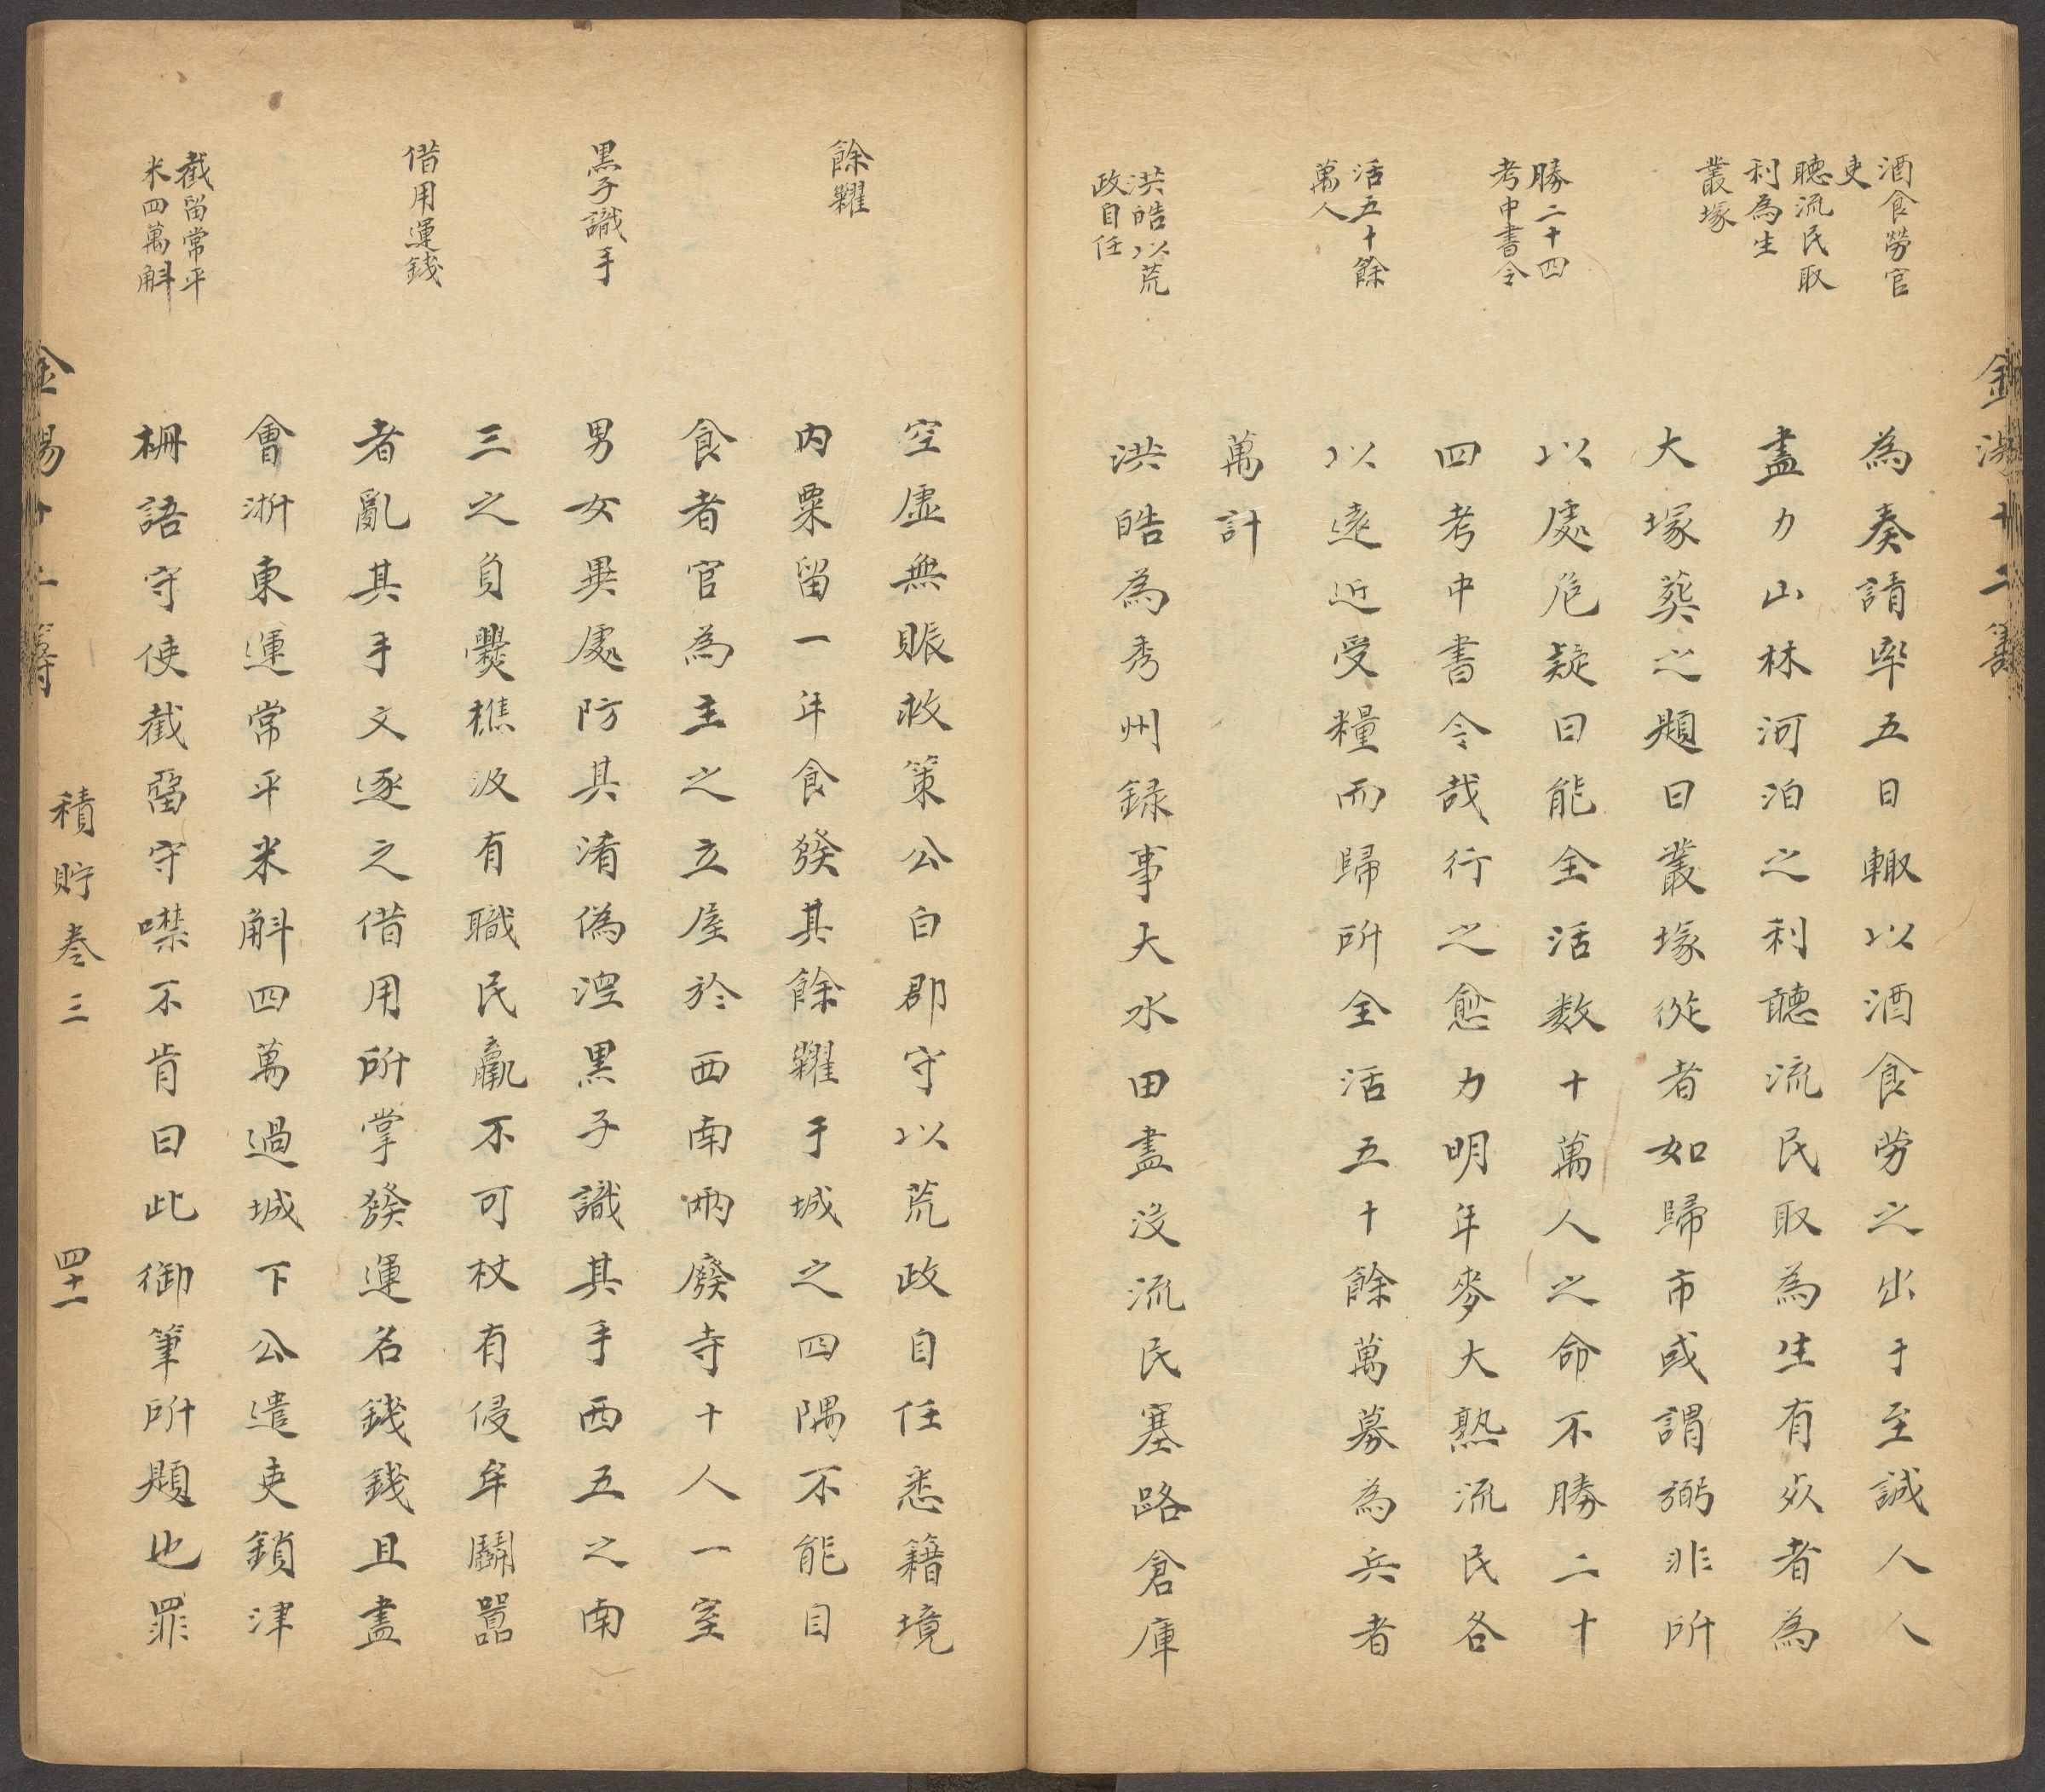 酒食勞官
吏
聽流民取
利為生
叢塚
勝二十四
考中書令
活五十餘
萬人
洪皓以荒
政自任
為奏請率五日輙以酒食勞之出于至誠人人
盡力山林河泊之利聽流民取為生有死者為
大塚葬之題曰叢塚從者如歸市或謂弼非所
以處危疑曰能全活数十萬人之命不勝二十
四考中書令哉行之愈力明年麥大熟流民各
以遠近受糧而歸所全活五十餘萬募為兵者
萬計
洪皓為秀州録事大水田盡沒流民塞路倉庫
餘糶
黑子識手
借用運錢
截留常平
米四萬斛
空虛無賑救策公白郡守以荒政自任悉籍境
内粟留一年食發其餘糶于城之四隅不能自
食者官為主之立屋於西南兩廢寺十人一室
男女異處防其淆偽涅黑子識其手西五之南
三之負爨樵汲有職民羸不可杖有侵牟鬬囂
者亂其手文逐之借用所掌發運名錢錢且盡
會浙東運常平米斛四萬過城下公遣吏鎖津
柵語守使截留守噤不肯曰此御筆所題也罪
積貯叁三
四十一